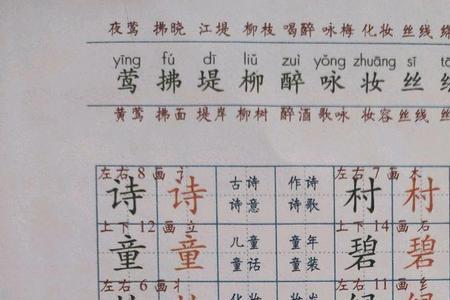 夜莺 拂晓 江堤 柳枝 喝醉 咏梅 化妆 丝线
yīng fú dī liǔ zuì yǒng zhuāng sī
莺 拂 堤 柳 醉 咏 妆 丝
黄莺 拂面 堤岸 柳树 醉酒 歌咏 妆容 丝线
左右 8 画 讠 左右 7 画 木
诗 诗 古诗 作诗 村 村
诗意 诗歌
上下 12 画 立 上下 14 画 石
童 童 儿童 童年 碧 碧
童话 童装
左右 6 画 丬 左右 11 画 纟